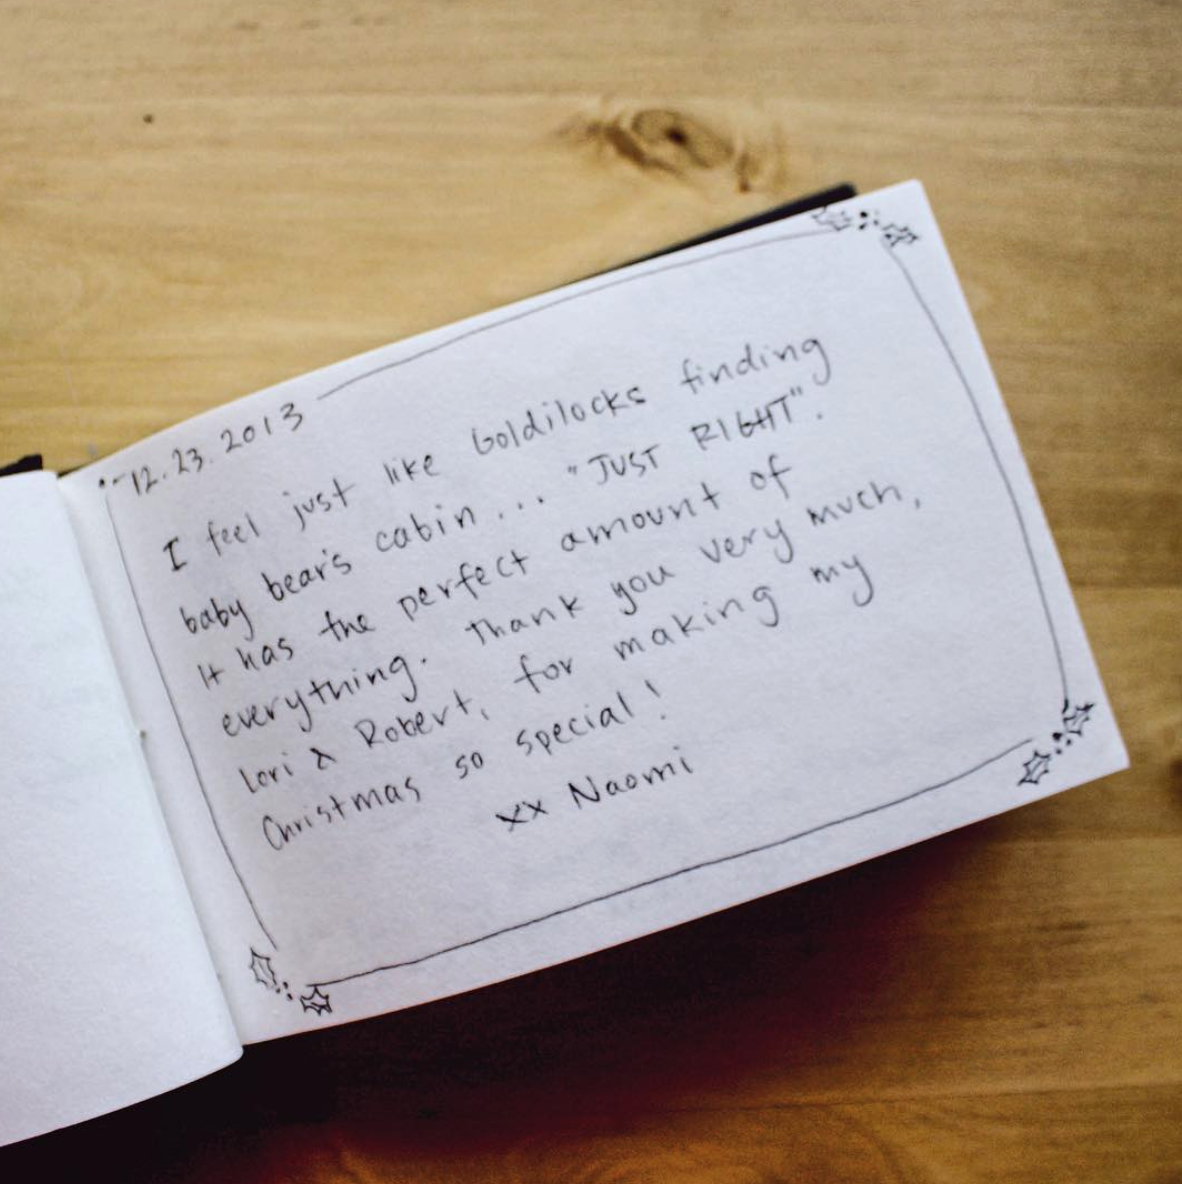 12.23.2013
I feel just like Goldilocks finding
baby bear's cabin... "JUST RIGHT".
It has the perfect amount of
everything. Thank you very much,
Lori & Robert, for making my
Christmas so special!
xx Naomi